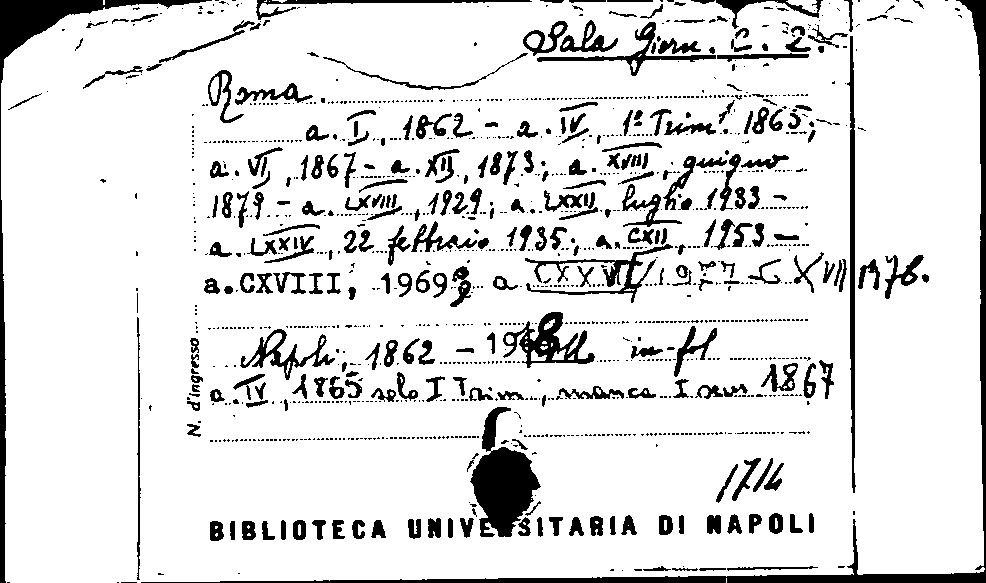 Sala Giorn. C. 2.
Roma.
a. I, 1862 - a. IV, 1º Trim. 1865;
a. VI, 1867 - a. XII, 1873; a. XVIII, guigno
1879 - a. LXVIII, 1929; a. LXXII, luglio 1933 -
a. LXXIV, 22 febbraio 1935; a. CXII, 1953 -
a. CXVIII, 1969; a. CXXVI 1977 - CXVII 1978.
Napoli, 1862 - in-fol
a. IV, 1865 solo I Trim, manca I sem. 1867
N. d'ingresso
1714
BIBLIOTECA UNIVERSITARIA DI NAPOLI